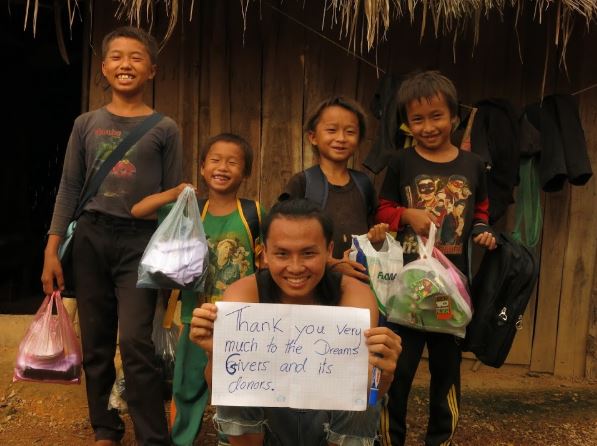 Thank you very
much to the Dreams
Givers and its
donors.